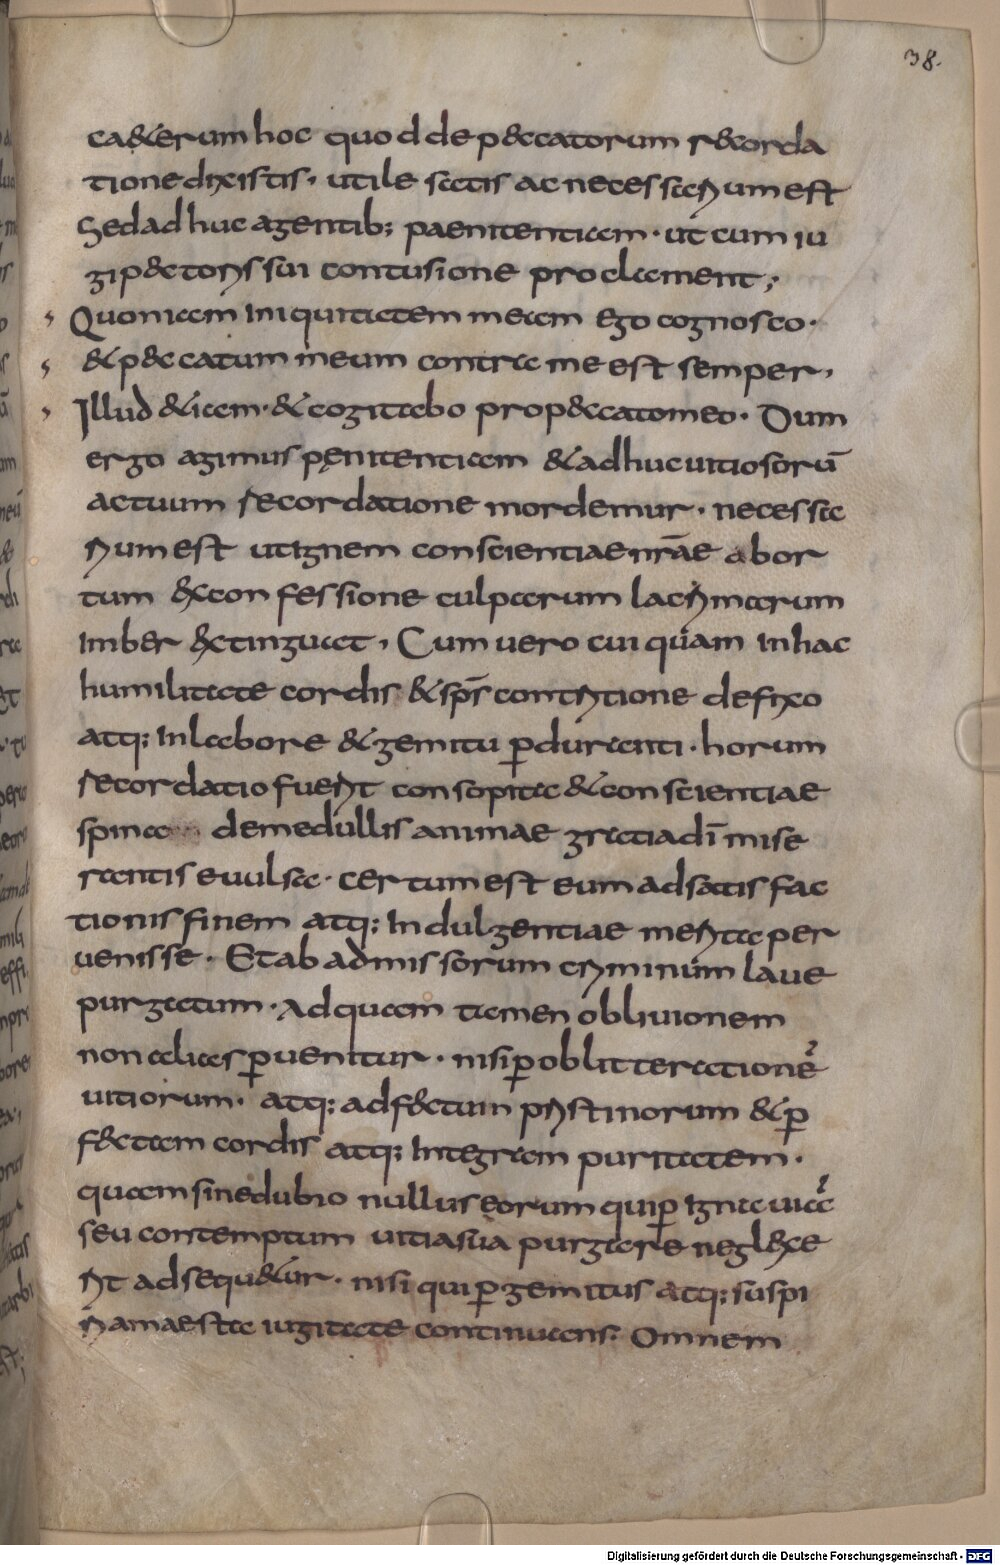 38.
ca&erum hoc quod de peccatorum recorda
tione dixistis, utile satis ac necessarium est
Sed adhuc agentib; paenitentiam · ut cum iu
gi pectoris sui contusione proclament;
Quoniam iniquitatem meam ego cognosco·
& peccatum meum contra me est semper,
Illud &iam· & cogitabo pro peccato meo· Dum
ergo agimus penitentiam & adhuc uitiosorū
actuum recordatione mordemur · necessa
rium est ut ignem conscientiae nr̄ae abor
tum ex confessione culparum lacrimarum
imber extinguat, Cum uero cuiquam in hac
humilitate cordis & sp̄s contritione defixo
atq; in labore & gemitu ꝑduranti · horum
recordatio fuerit consopita & conscientiae
spina de medullis animae gratia dī mise
rantis euulsa · certum est eum ad satisfac
tionis finem atq; indulgentiae merita per
uenisse · Et ab admissorum criminum laue
purgatum · Ad quam tamen obliuionem
non alias ꝑuenitur · nisi ꝑ oblitterationē
uitiorum · atq; adfectum pristinorum & ꝑ
fectam cordis atq; integram puritatem ·
quam sine dubio nullus eorum qui ꝑ ignauiā
seu contemptum uitia sua purgare neglexe
rit adsequ&ur · nisi qui ꝑ gemitus atq; suspi
ria maesta iugitate continuans· Omnem
Digitalisierung gefördert durch die Deutsche Forschungsgemeinschaft - DFG